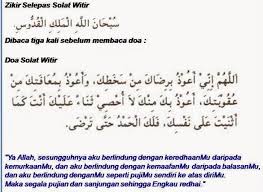 Zikir Selepas Solat Witir
سُبْحَانَ اللَّهِ الْمَلِكِ الْقُدُّوسِ.
Dibaca tiga kali sebelum membaca doa :
Doa Solat Witir
اَللَّهُمَّ إِنِّي أَعُوْذُ بِرِضَاكَ مِنْ سَخَطِكَ، وَأَعُوْذُ بِمُعَافَاتِكَ مِنْ
عُقُوْبَتِكَ، وَأَعُوْذُ بِكَ مِنْكَ لاَ أُحْصِيْ ثَنَاءً عَلَيْكَ أَنْتَ كَمَا
أَثْنَيْتَ عَلَى نَفْسِكَ، فَلَكَ الْحَمْدُ حَتَّى تَرْضَى.
"Ya Allah, sesungguhnya aku berlindung dengan keredhaanMu daripada
kemurkaanMu, dan aku berlindung dengan kemaafanMu daripada balasanMu,
dan aku berlindung denganMu seperti pujiMu sendiri ke atas diriMu.
Maka segala pujian dan sanjungan sehingga Engkau redhai."